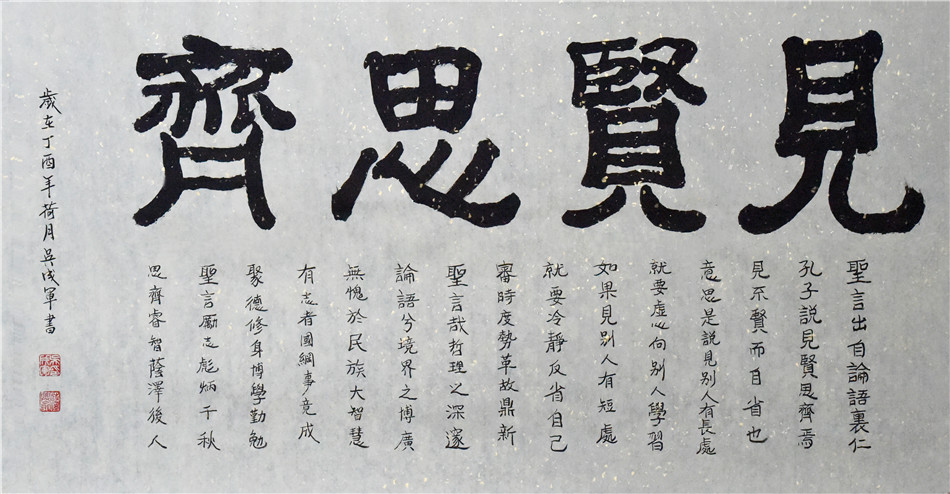 見賢思齊
聖言出自論語裏仁
孔子説見賢思齊焉
見不賢而自省也
意思是説見别人有長處
就要虛心向别人學習
如果見别人有短處
就要冷靜反省自己
審時度勢革故鼎新
聖言哉哲理之深邃
論語兮境界之博廣
無愧於民族大智慧
有志者國綱事竟成
聚德修身博學勤勉
聖言勵志彪炳千秋
思齊睿智蔭澤後人
歲在丁酉年荷月吴成軍書